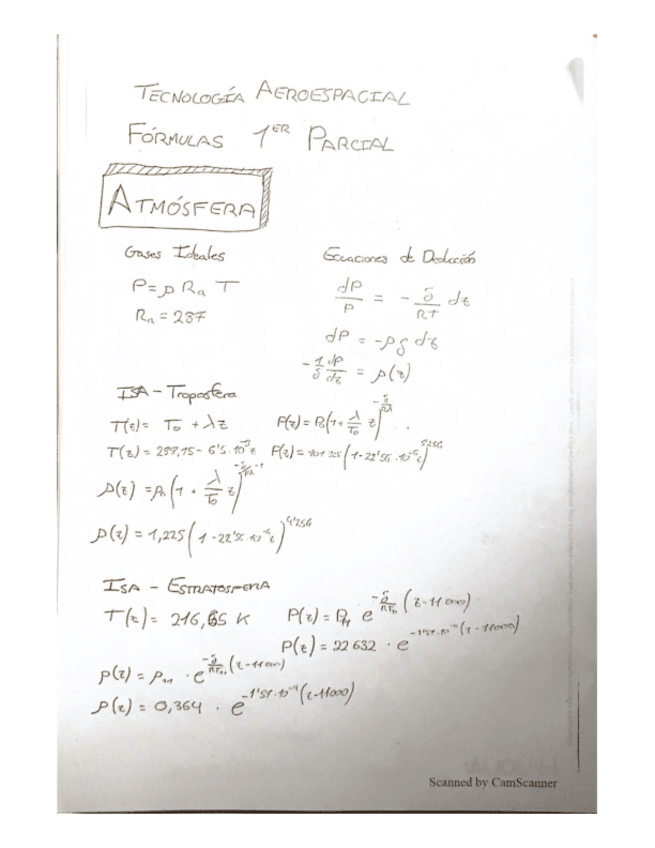 TECNOLOGÍA AEROESPACIAL
FÓRMULAS 1ER PARCIAL
ATMÓSFERA
Gases Ideales
P = ρ Ra T
Ra = 287
Ecuaciones de Deducción
dP/P = - g/RT dz
dP = -ρg dz
-1/g dP/dz = ρ(z)
ISA - Troposfera
T(z) = T0 + λz P(z) = P0(1 + λ/T0 z)^(-g/Rλ)
T(z) = 288,15 - 6'5·10^-3 z P(z) = 101325(1 - 22'56·10^-6 z)^5'256
ρ(z) = ρ0(1 + λ/T0 z)^(-g/Rλ - 1)
ρ(z) = 1,225(1 - 22'56·10^-6 z)^4'256
ISA - ESTRATOSFERA
T(z) = 216,65 K P(z) = P11 e^(-g/RT11 (z-11000))
P(z) = 22632 · e^(-1'57·10^-4 (z-11000))
ρ(z) = ρ11 · e^(-g/RT11 (z-11000))
ρ(z) = 0,364 · e^(-1'57·10^-4 (z-11000))
Scanned by CamScanner